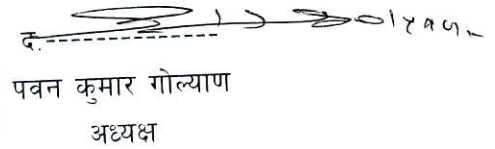 द.
पवन कुमार गोल्याण
अध्यक्ष